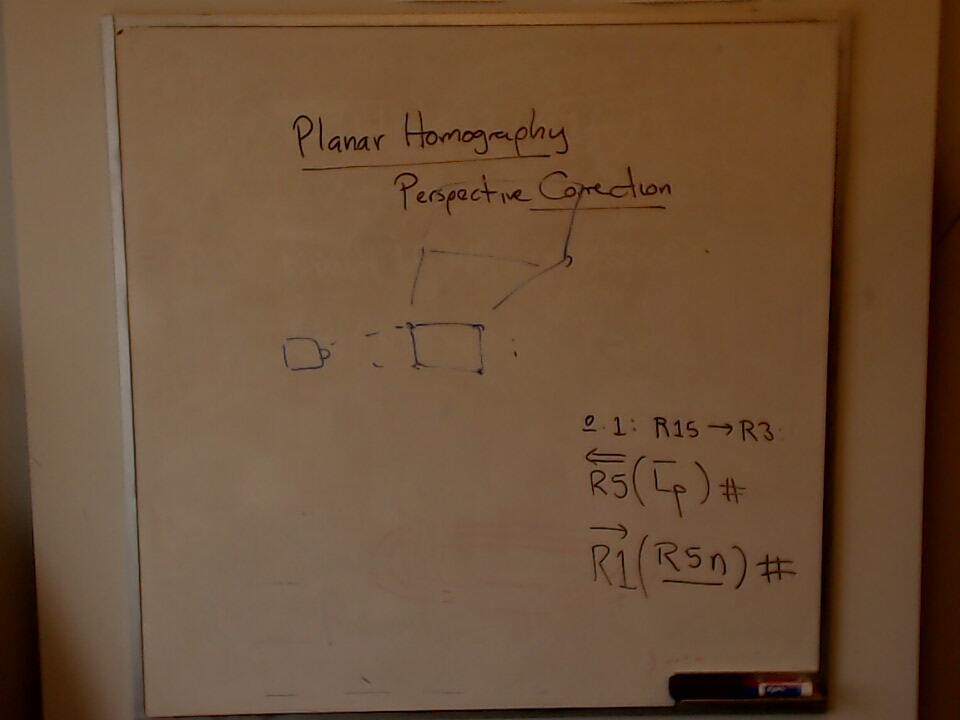 Planar Homography
Perspective Correction
o.1: R15 → R3
R5(Lp) #
R1(R5n) #